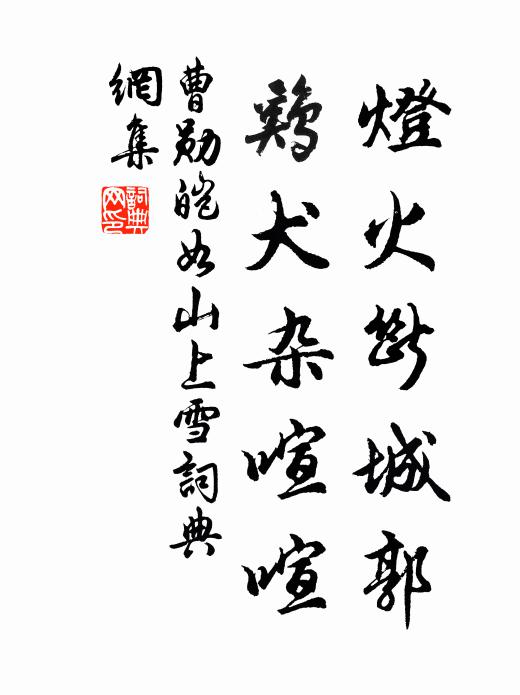 燈火斷城郭
鷄犬杂喧喧
曹勛皚如山上雪詞典
網集
詞典网印